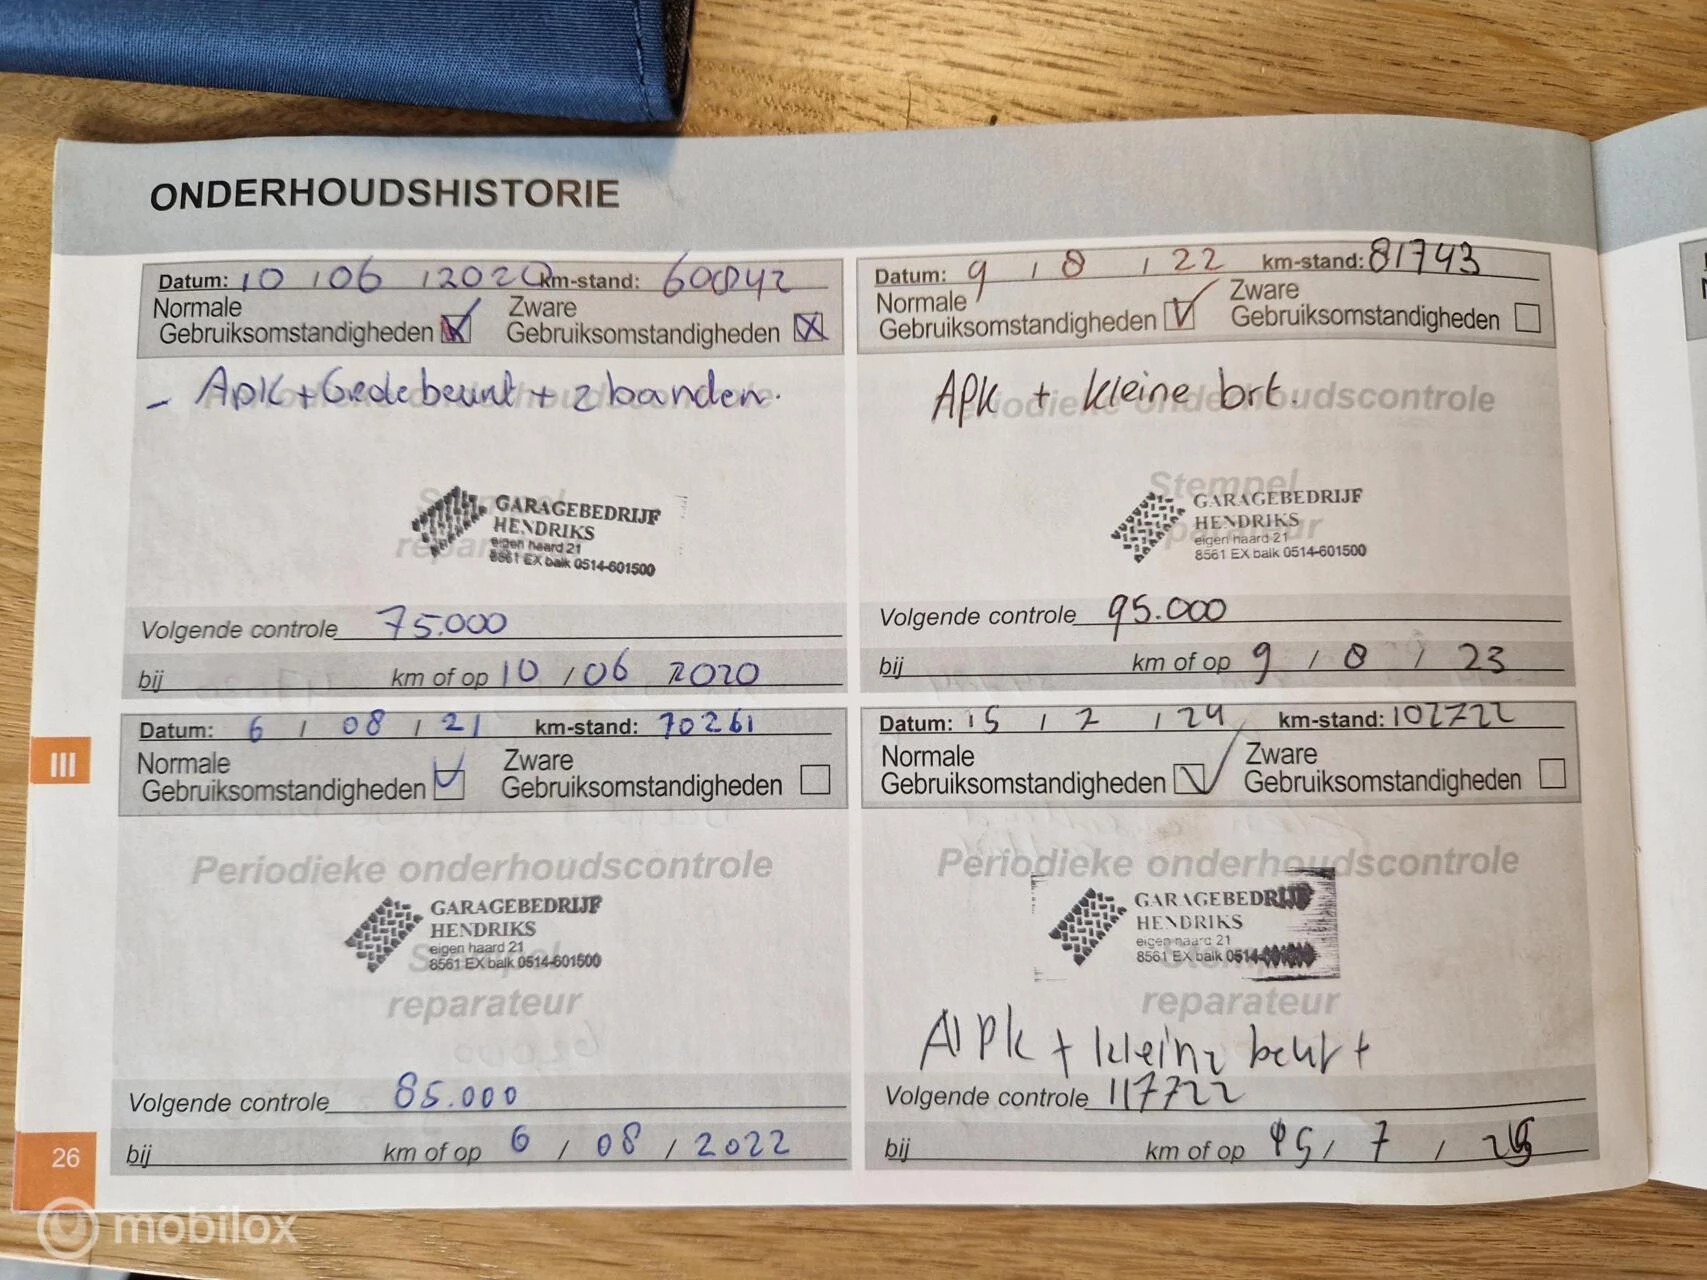 ONDERHOUDSHISTORIE
Datum: 10 / 06 / 2020 km-stand: 60842
Normale
Gebruiksomstandigheden
Zware
Gebruiksomstandigheden
- Apk + Grote beurt + 2 banden.
Periodieke onderhoudscontrole
Stempel
reparateur
GARAGEBEDRIJF
HENDRIKS
eigen haard 21
8561 EX balk 0514-601500
Volgende controle 75.000
bij km of op 10 / 06 2020
Datum: 6 / 08 / 21 km-stand: 70261
Normale
Gebruiksomstandigheden
Zware
Gebruiksomstandigheden
Periodieke onderhoudscontrole
GARAGEBEDRIJF
HENDRIKS
eigen haard 21
8561 EX balk 0514-601500
Stempel
reparateur
Volgende controle 85.000
bij km of op 6 / 08 / 2022
Datum: 9 / 8 / 22 km-stand: 81743
Normale
Gebruiksomstandigheden
Zware
Gebruiksomstandigheden
APK + kleine brt.
Periodieke onderhoudscontrole
Stempel
reparateur
GARAGEBEDRIJF
HENDRIKS
eigen haard 21
8561 EX balk 0514-601500
Volgende controle 95.000
bij km of op 9 / 8 / 23
Datum: 15 / 7 / 24 km-stand: 102722
Normale
Gebruiksomstandigheden
Zware
Gebruiksomstandigheden
Periodieke onderhoudscontrole
GARAGEBEDRIJF
HENDRIKS
eigen haard 21
8561 EX balk
Stempel
reparateur
APK + kleine beurt +
Volgende controle 117722
bij km of op 15 / 7 /
III
26
mobilox